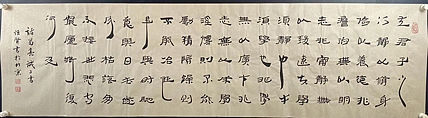 夫君子之
行靜以修身
儉以養德非
澹泊無以明
志非寧靜無
以致遠夫學
須靜也才
須學也非學
無以廣才非
志無以成學
淫慢則不能
年與時馳
意與日去
遂成枯落多
不接世悲守
窮廬將復
何及
諸葛亮誡子書